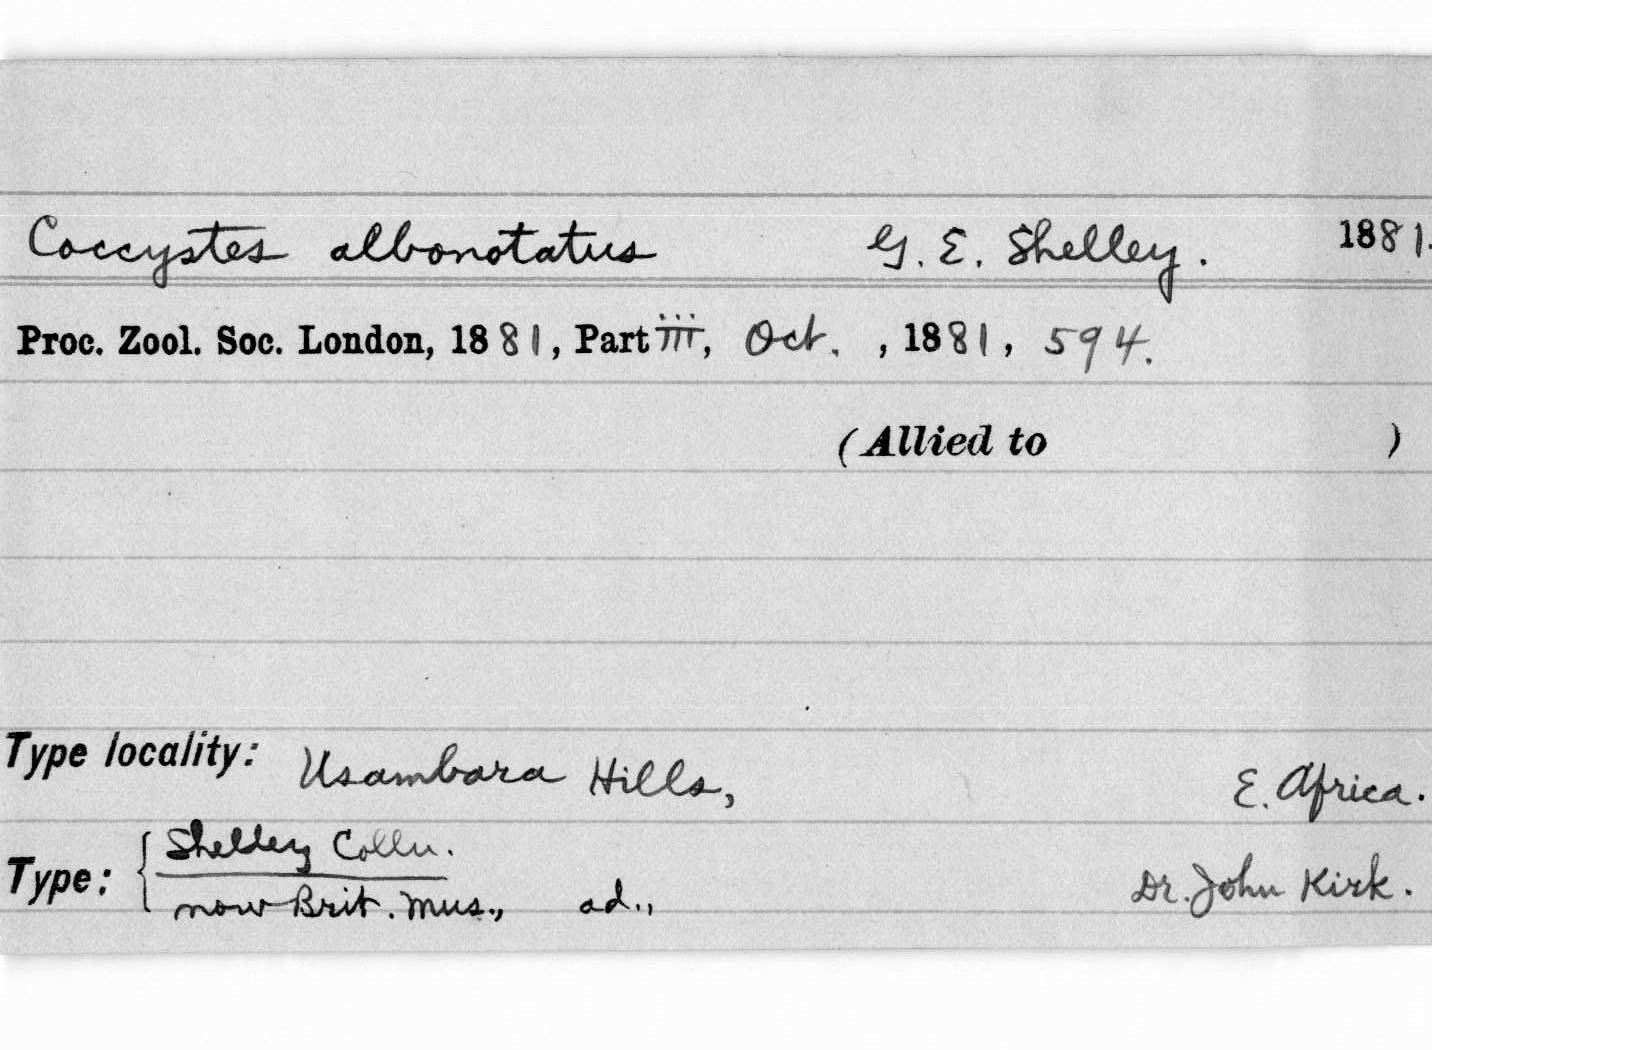 Coccystes albonotatus G. E. Shelley. 1881.
Proc. Zool. Soc. London, 1881, Part iii, Oct. , 1881, 594.
(Allied to )
Type locality: Usambara Hills, E. Africa.
Type: { Shelley Colln.
now Brit. Mus., ad., Dr. John Kirk.